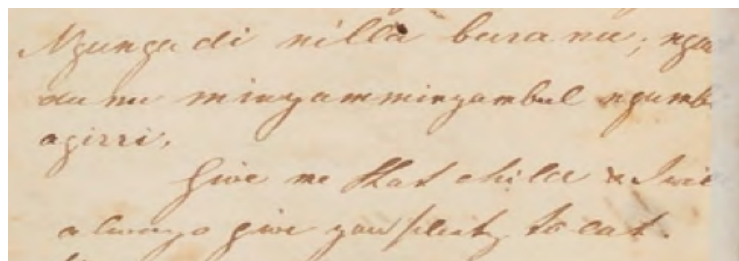 Ngunga di nilla bura nu; nga
du nu minyamminyambul ngumb
agirri.
Give me that child & I wi
always give you plenty to eat.